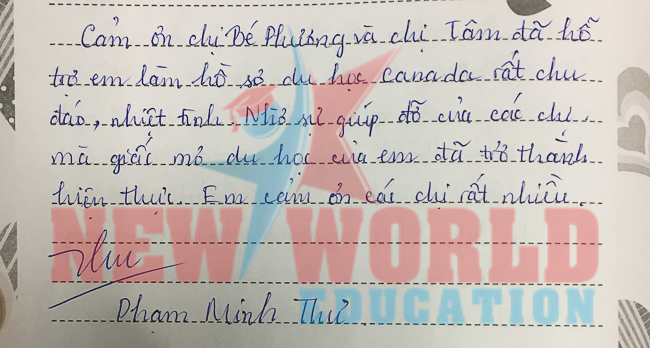 Cảm ơn chị Bé Phương và chị Tâm đã hỗ
trợ em làm hồ sơ du học Canada rất chu
đáo, nhiệt tình. Nhờ sự giúp đỡ của các chị
mà giấc mơ du học của em đã trở thành
hiện thực. Em cảm ơn các chị rất nhiều.
Thư
NEW WORLD
EDUCATION
Phạm Minh Thư.